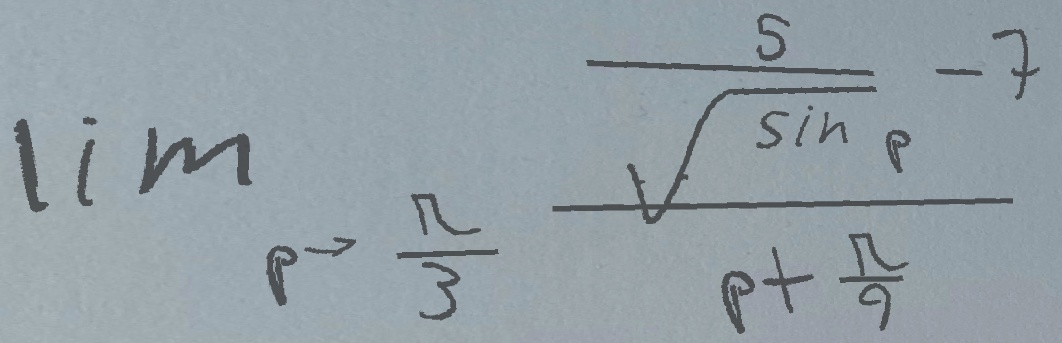 \lim_{p \to \frac{\pi}{3}} \frac{\frac{5}{\sqrt{\sin p}} - 7}{p + \frac{\pi}{9}}